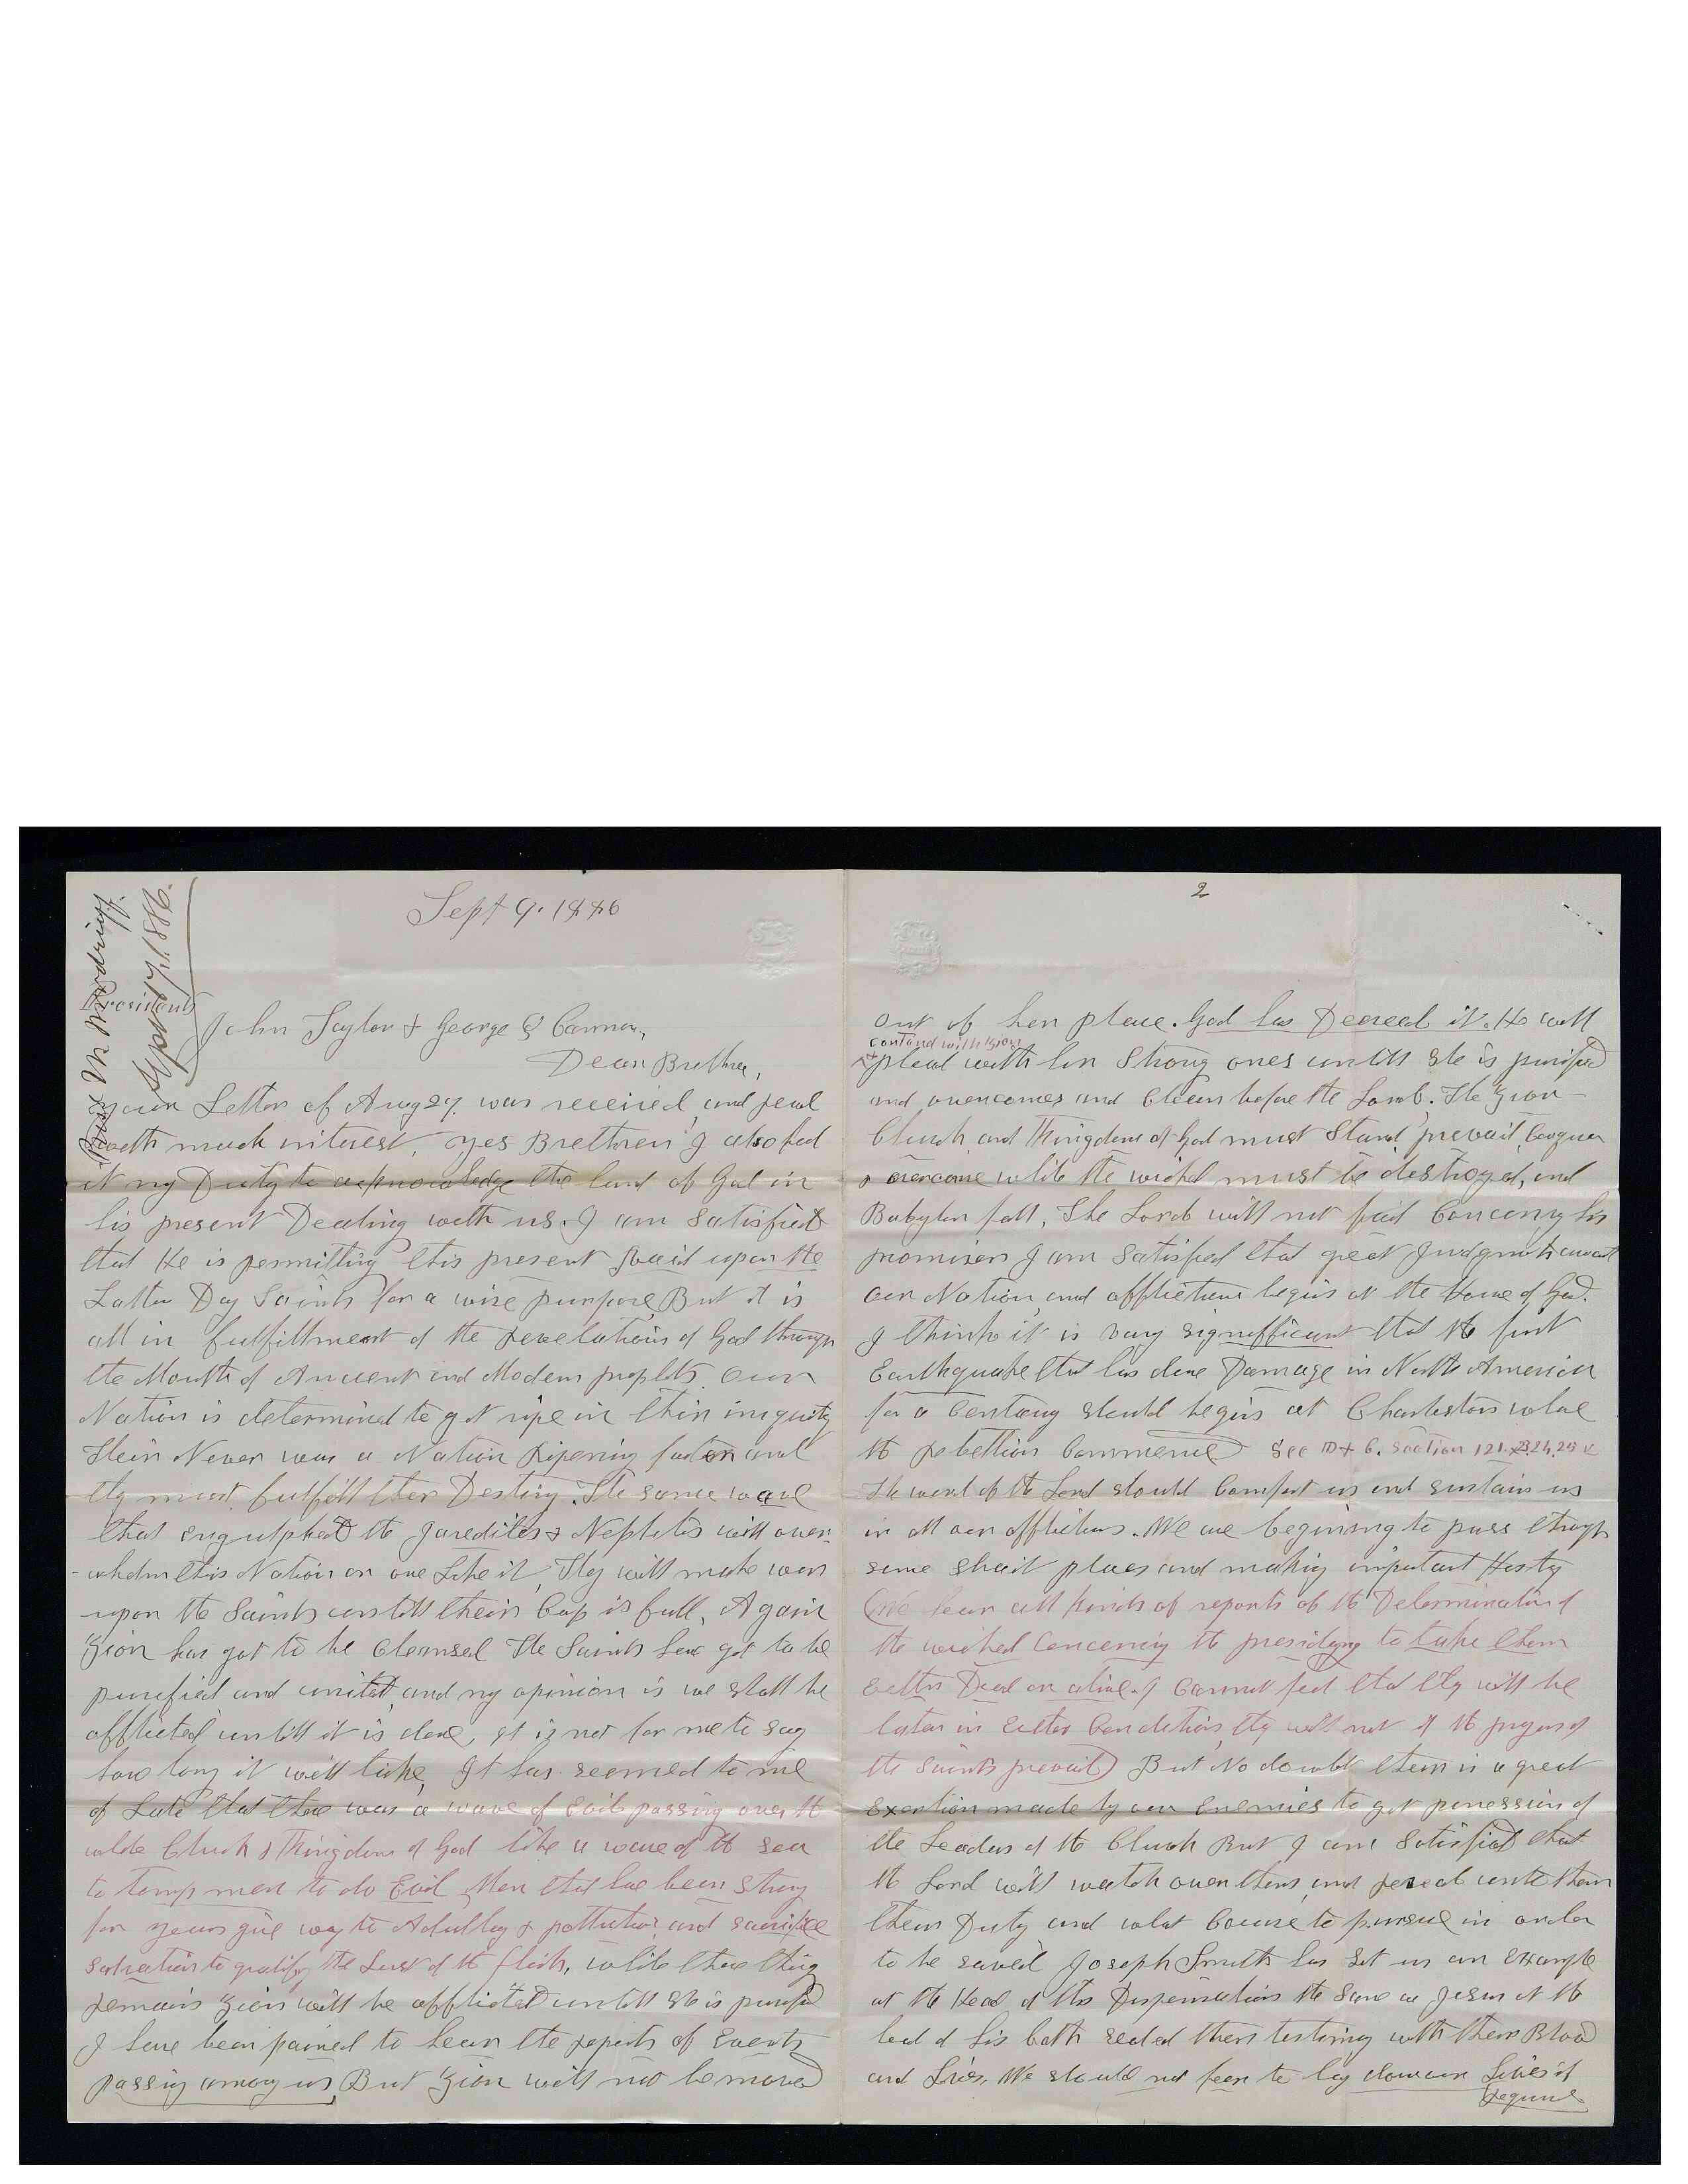 Sept 9. 1886
W Woodruff
Sept 9, 1886.
Presidents
John Taylor & George Q Cannon,
Dear Brethren,
your Letter of Aug 27. was received and read
with much interest, yes Brethren I also feel
it my Duty to acknowledge the hand of God in
his present Dealing with us. I am satisfied
that He is permitting this present Raid upon the
Latter Day Saints for a wise purpose But it is
all in fulfillment of the revelations of God through
the Mouth of Ancient and Modern prophets. Our
Nation is determined to get ripe in their iniquity
Their Never was a Nation Ripening faster and
they must fulfill their Destiny. The same wave
that engulphed the Jaredites & Nephites will over-
-whelm this Nation or one Like it, They will make war
upon the Saints untill their Cup is full, Again
Zion has got to be Cleansed The Saints have got to be
purified and united and my opinion is we shall be
afflicted untill it is done, it is not for me to say
how long it will take, It has seemed to me
of Late that there was a wave of Evil passing over the
whole Church & Kingdom of God like a wave of the sea
to temp men to do Evil Men that have been strong
for years give way to Adultery & pollution, and sacrifice
salvation to gratify the Lust of the flesh, while these things
remain Zion will be afflicted untill she is purified
I have been pained to hear the reports of Events
passing among us, But Zion will not be moved
2
out of her place. God has Decreed it. He will
contend with Zion
& plead with her Strong ones untill she is purified
and overcomes and Clean before the Lord. The Zion
Church, and Kingdom of God must Stand, prevail, Conquer
& overcome while the wicked must be destroyed, and
Babylon fall, The Lord will not fail Concerning his
promises I am Satisfied that great Judgments await
our Nation, and afflictions begins at the House of God.
I think it is vary significant that the first
Earthquake that has done Damage in North America
for a Century should begin at Charleston whare
the rebellion Commenced See D & C. Section 121. 23, 24, 25 v
The word of the Lord should Comfort us and sustain us
in all our afflictions. We are begining to pass through
some strait places and making important History
(We hear all kinds of reports of the Determination of
the wicked Concerning the presidency to take them
Either Dead or alive. I Cannot feel that they will be
taken in Either Condition, they will not if the prayers of
the Saints prevail) But No doubt their is a great
Exertion made by our Enemies to get possession of
the Leaders of the Church But I am Satisfied that
the Lord will watch over them, and reveal unto them
their Duty and what Course to pursue in order
to be saved Joseph Smith has set us an Example
at the Head of this Dispensation the Same as Jesus at the
head of his both sealed there testimony with their Blood
and Lives, We should not fear to lay down our Lives if
required